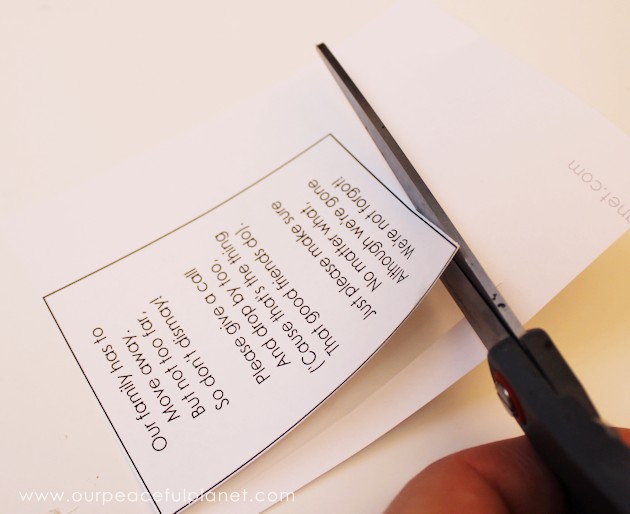 Our family has to
Move away.
But not too far,
So don't dismay!
Please give a call
And drop by too,
('Cause that's the thing
That good friends do).
Just please make sure
No matter what,
Although we're gone
We're not forgot!!
net.com
www.ourpeacefulplanet.com